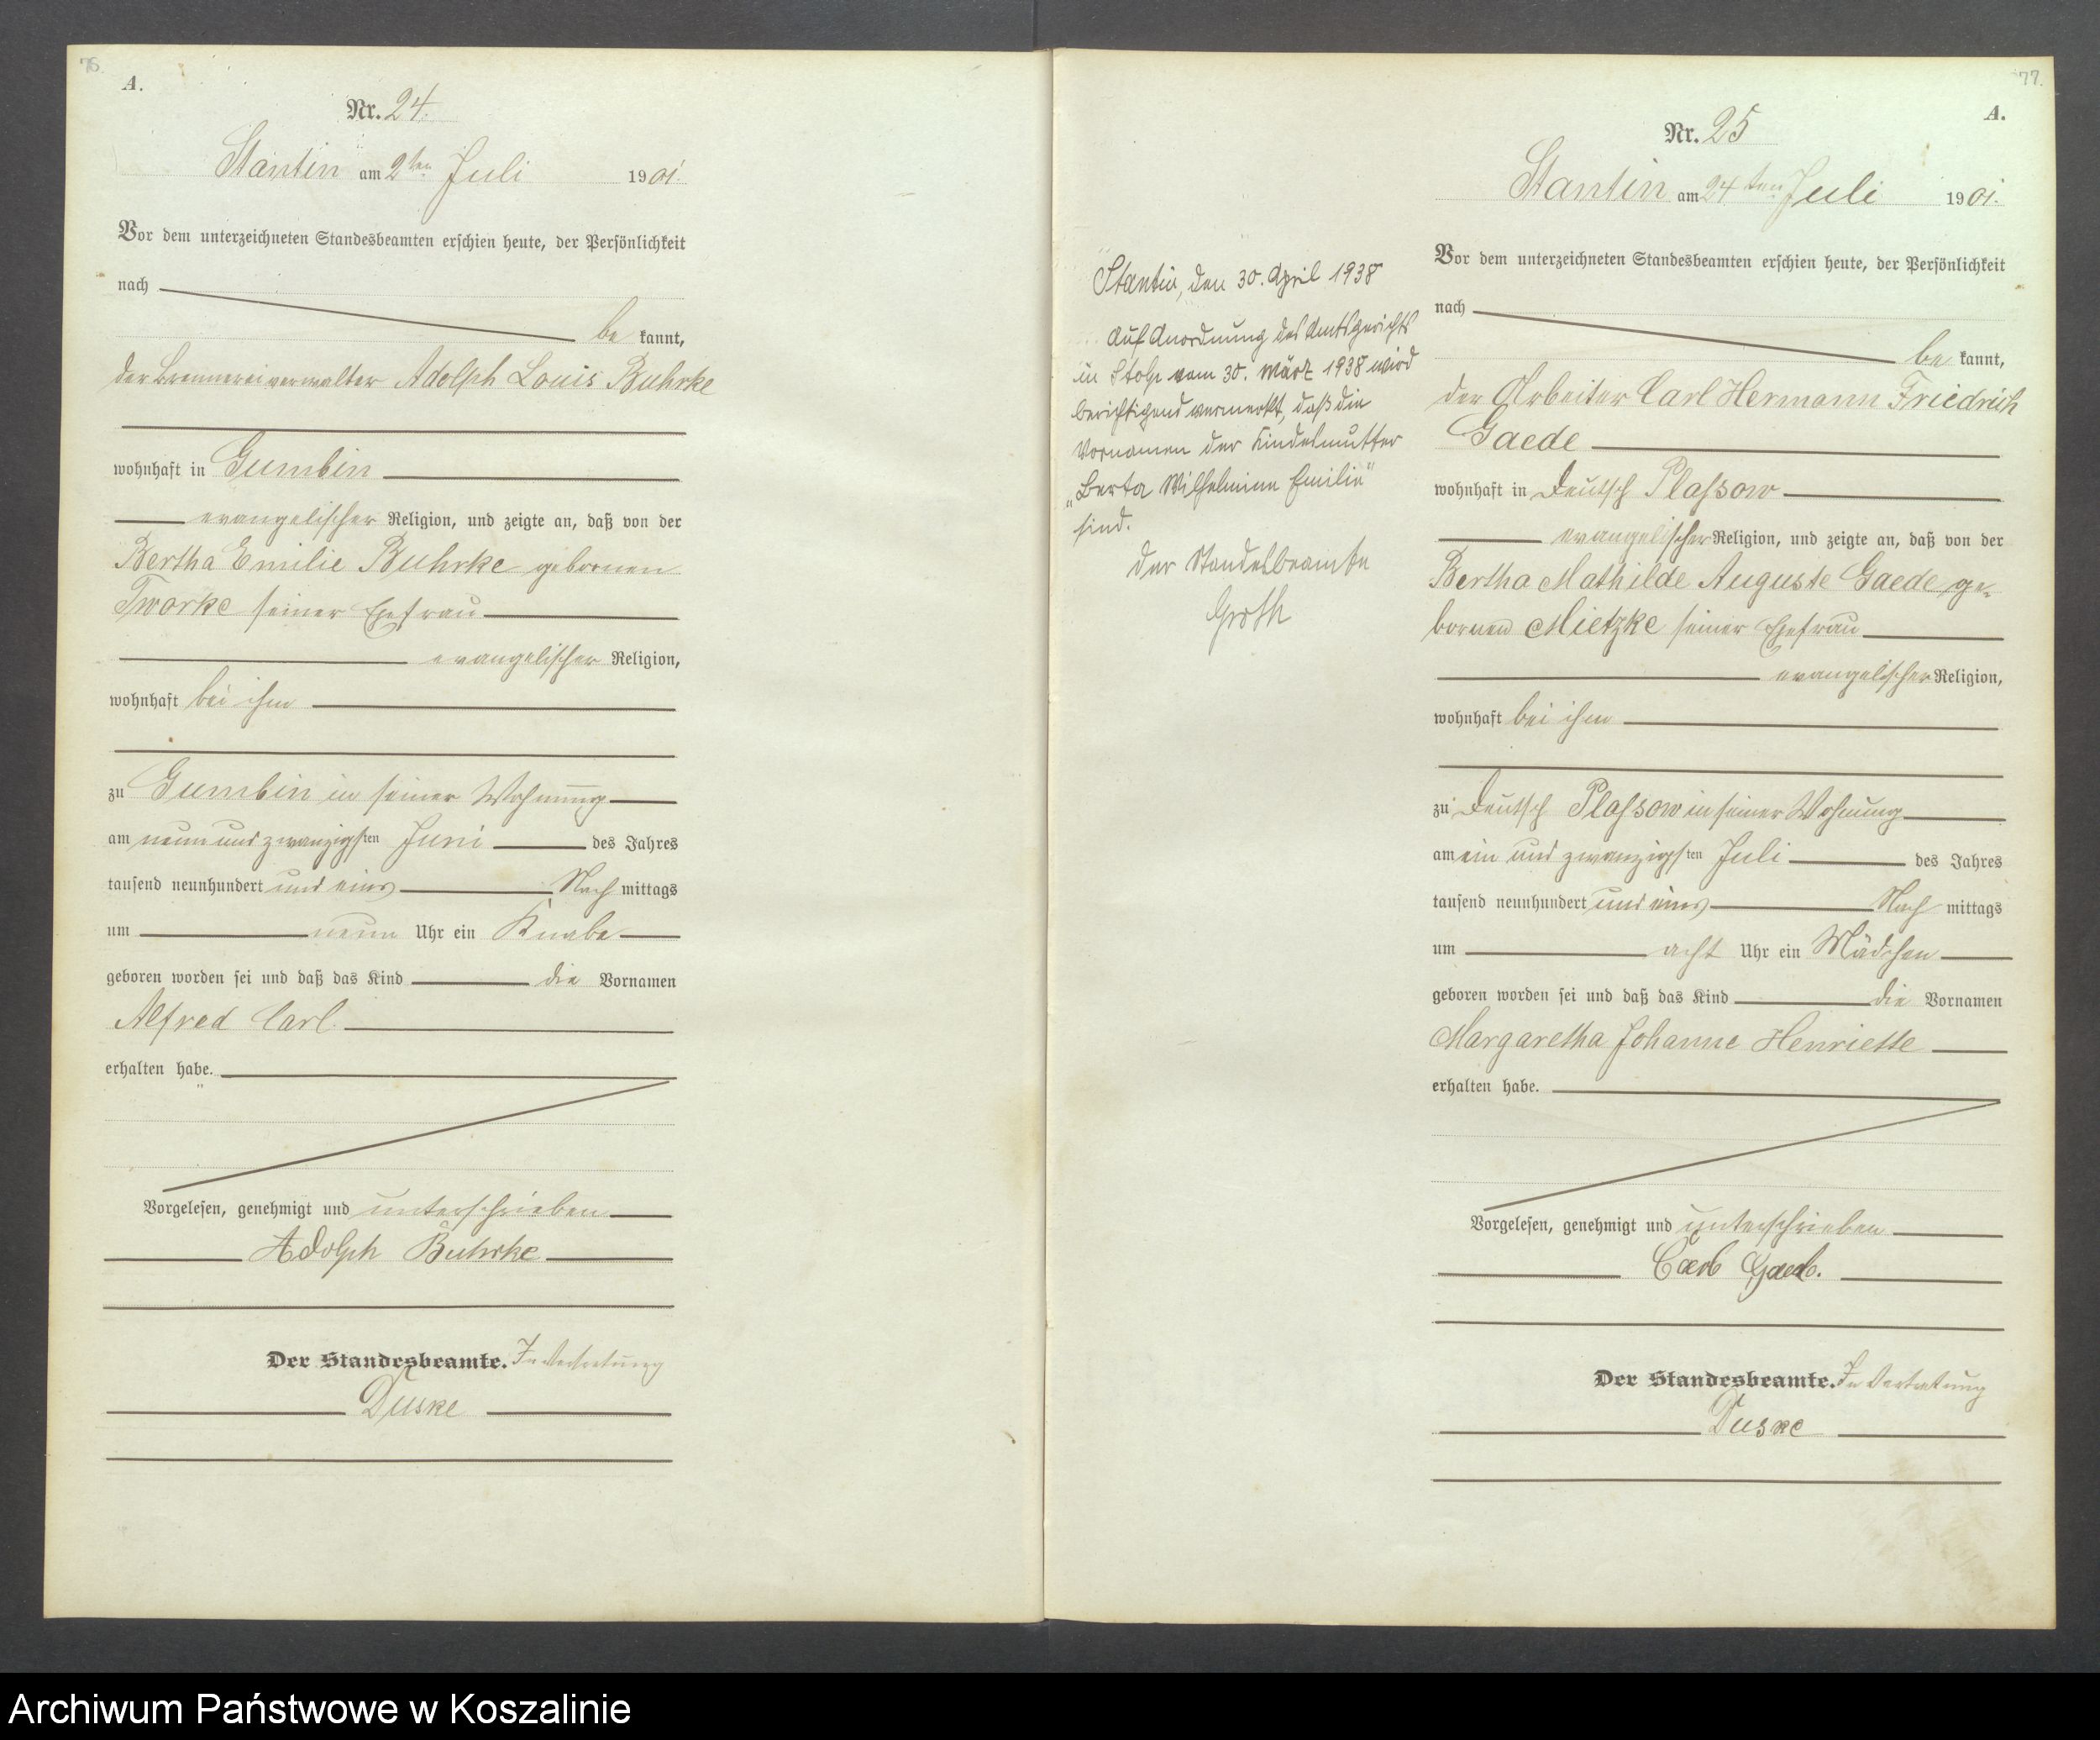 76.
A.
Nr. 24.
Stantin am 2ten Juli 1901.
Vor dem unterzeichneten Standesbeamten erschien heute, der Persönlichkeit
nach
be kannt,
der Brennereiverwalter Adolph Louis Buhrke
wohnhaft in Gumbin
evangelischer Religion, und zeigte an, daß von der
Bertha Emilie Buhrke gebornen
Tworke seiner Ehefrau
evangelischer Religion,
wohnhaft bei ihm
zu Gumbin in seiner Wohnung
am neun und zwanzigsten Juni des Jahres
tausend neunhundert und eins Nach mittags
um neun Uhr ein Knabe
geboren worden sei und daß das Kind die Vornamen
Alfred Carl
erhalten habe.
Vorgelesen, genehmigt und unterschrieben
Adolph Buhrke
Der Standesbeamte. In Vertretung
Duske
77.
A.
Nr. 25
Stantin am 24ten Juli 1901.
Vor dem unterzeichneten Standesbeamten erschien heute, der Persönlichkeit
nach
be kannt,
der Arbeiter Carl Hermann Friedrich
Gaede
wohnhaft in Deutsch Plassow
evangelischer Religion, und zeigte an, daß von der
Bertha Mathilde Auguste Gaede ge-
bornen Mietzke seiner Ehefrau
evangelischer Religion,
wohnhaft bei ihm
zu Deutsch Plassow in seiner Wohnung
am ein und zwanzigsten Juli des Jahres
tausend neunhundert und eins Nach mittags
um acht Uhr ein Mädchen
geboren worden sei und daß das Kind die Vornamen
Margaretha Johanne Henriette
erhalten habe.
Vorgelesen, genehmigt und unterschrieben
Carl Gaede.
Der Standesbeamte. In Vertretung
Duske
Stantin, den 30. April 1938
Auf Anordnung des Amtsgerichts
in Stolp vom 30. März 1938 wird
berichtigend vermerkt, daß die
Vornamen der Kindesmutter
„Berta Wilhelmine Emilie"
sind.
Der Standesbeamte
Groth
Archiwum Państwowe w Koszalinie